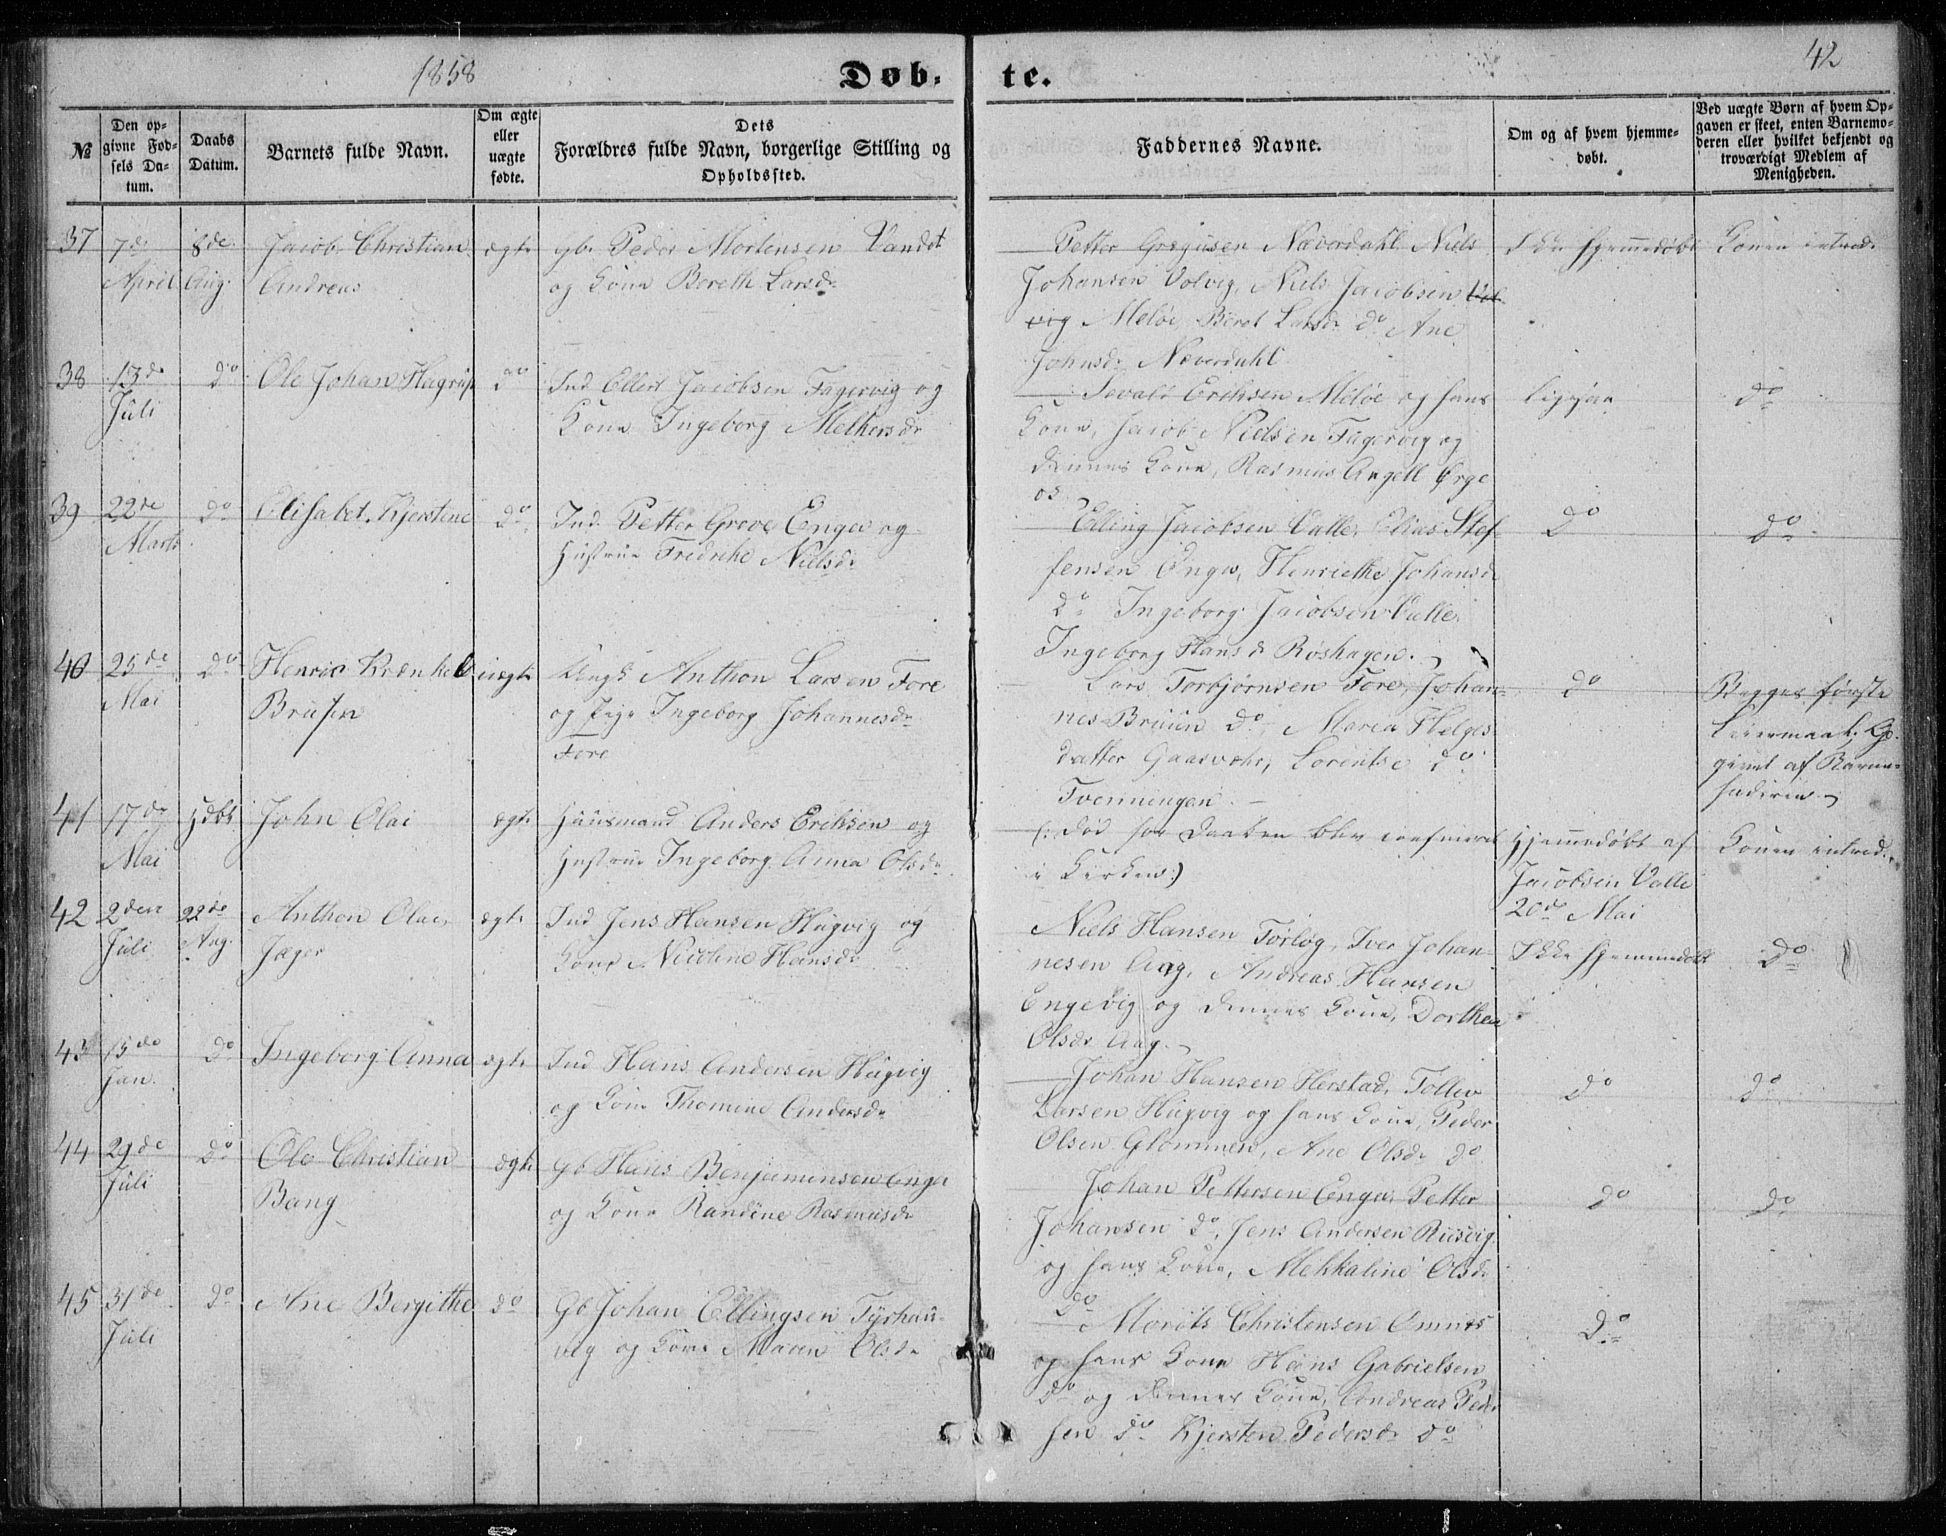 1858
Døb-
te.
42
№
Den op-
givne Fød-
sels Da-
tum.
Daabs
Datum.
Barnets fulde Navn.
Om ægte
eller
uægte
fødte.
Dets
Forældres fulde Navn, borgerlige Stilling og
Opholdssted.
Faddernes Navne.
Om og af hvem hjemme-
døbt.
Ved uægte Børn af hvem Op-
gaven er skeet, enten Barnemo-
deren eller hvilket bekjendt og
troværdigt Medlem af
Menigheden.
37
7de
April
8de
Aug.
Jacob Christian
Andreas
ægte
Gb. Peder Mortensen Vandet
og Kone Bereth Larsdr
Petter Gregusen Næverdahl Niels
Johansen Volvig, Niels Jacobsen Vol-
vig Meløe, Beret Larsdr do Ane
Johnsdr Næverdahl
Ikke hjemmedøbt
Konen introd.
38
13de
Juli
do
Ole Johan Hagrup
do
Ind Ellert Jacobsen Fagervig og
Kone Ingeborg Melkersdr
Sevald Eriksen Meløe og hans
Kone, Jacob Nielsen Fagervig og
dennes Kone, Rasmus Angell Ørge
os.
ligesaa
do
39
22de
Marts
do
Elisabet Kjerstene
do
Ind. Petter Greve Enga og
Hustrue Fredrike Nielsdr
Elling Jacobsen Valle, Elias Stef-
fensen Enga, Henriethe Johansdr
do Ingeborg Jacobsen Valle,
Ingeborg Hansdr Røshagen.
do
do
40
25de
Mai
do
Henric Krænkel
Brusen
uægte
Ungk Anthon Larsen Fore
og Pige Ingeborg Johannesdr
Fore
Lars Torbjørnsen Fore, Johan-
nes Bruun do, Maren Helges-
datter Gaasvær, Lorentse do
Tvenningen.
do
Begges første
Leiermaal. Op-
givet af Barne-
faderen
41
17de
Mai
Hdbt
John Olai
ægte
Huusmand Anders Eriksen og
Hustrue Ingeborg Anna Olsdr
(: død før Daaben blev confirmeret
i Kirken:)
Hjemmedøbt af
Jacobsen Valle
20de Mai
Konen introd.
42
2den
Juli
22de
Aug.
Anthon Olai
Jæger
ægte
Ind Jens Hansen Hugvig og
Kone Nicoline Hansdr
Niels Hansen Torløg, Iver Johan-
nesen Aag, Andreas Hansen
Engevig og dennes Kone, Dorthea
Olsdr Aag.
Ikke hjemmedøbt
do
43
15de
Jan.
do
Ingeborg Anna
ægte
Ind Hans Andersen Hugvig
og Kone Thomine Andersdr
Johan Hansen Herstad, Tollev
Larsen Hugvig og hans Kone, Peder
Olsen Glommen, Ane Olsdr do
do
do
44
29de
Juli
do
Ole Christian
Bang
ægte
Gb Hans Benjaminsen Enga
og Kone Randine Rasmusdr
Johan Pettersen Enga, Petter
Johansen do, Jens Andersen Ruisvig
og hans Kone, Mekkaline Olsdr
do
do
do
45
31de
Juli
do
Ane Bergithe
do
Gb Johan Ellingsen Tyrhau-
vig og Kone Maren Olsdr
Morits Christensen Omnes
og hans Kone Hans Gabrielsen
do og dennes Kone, Andreas Peder
sen do Kjersten Pedersdr do
do